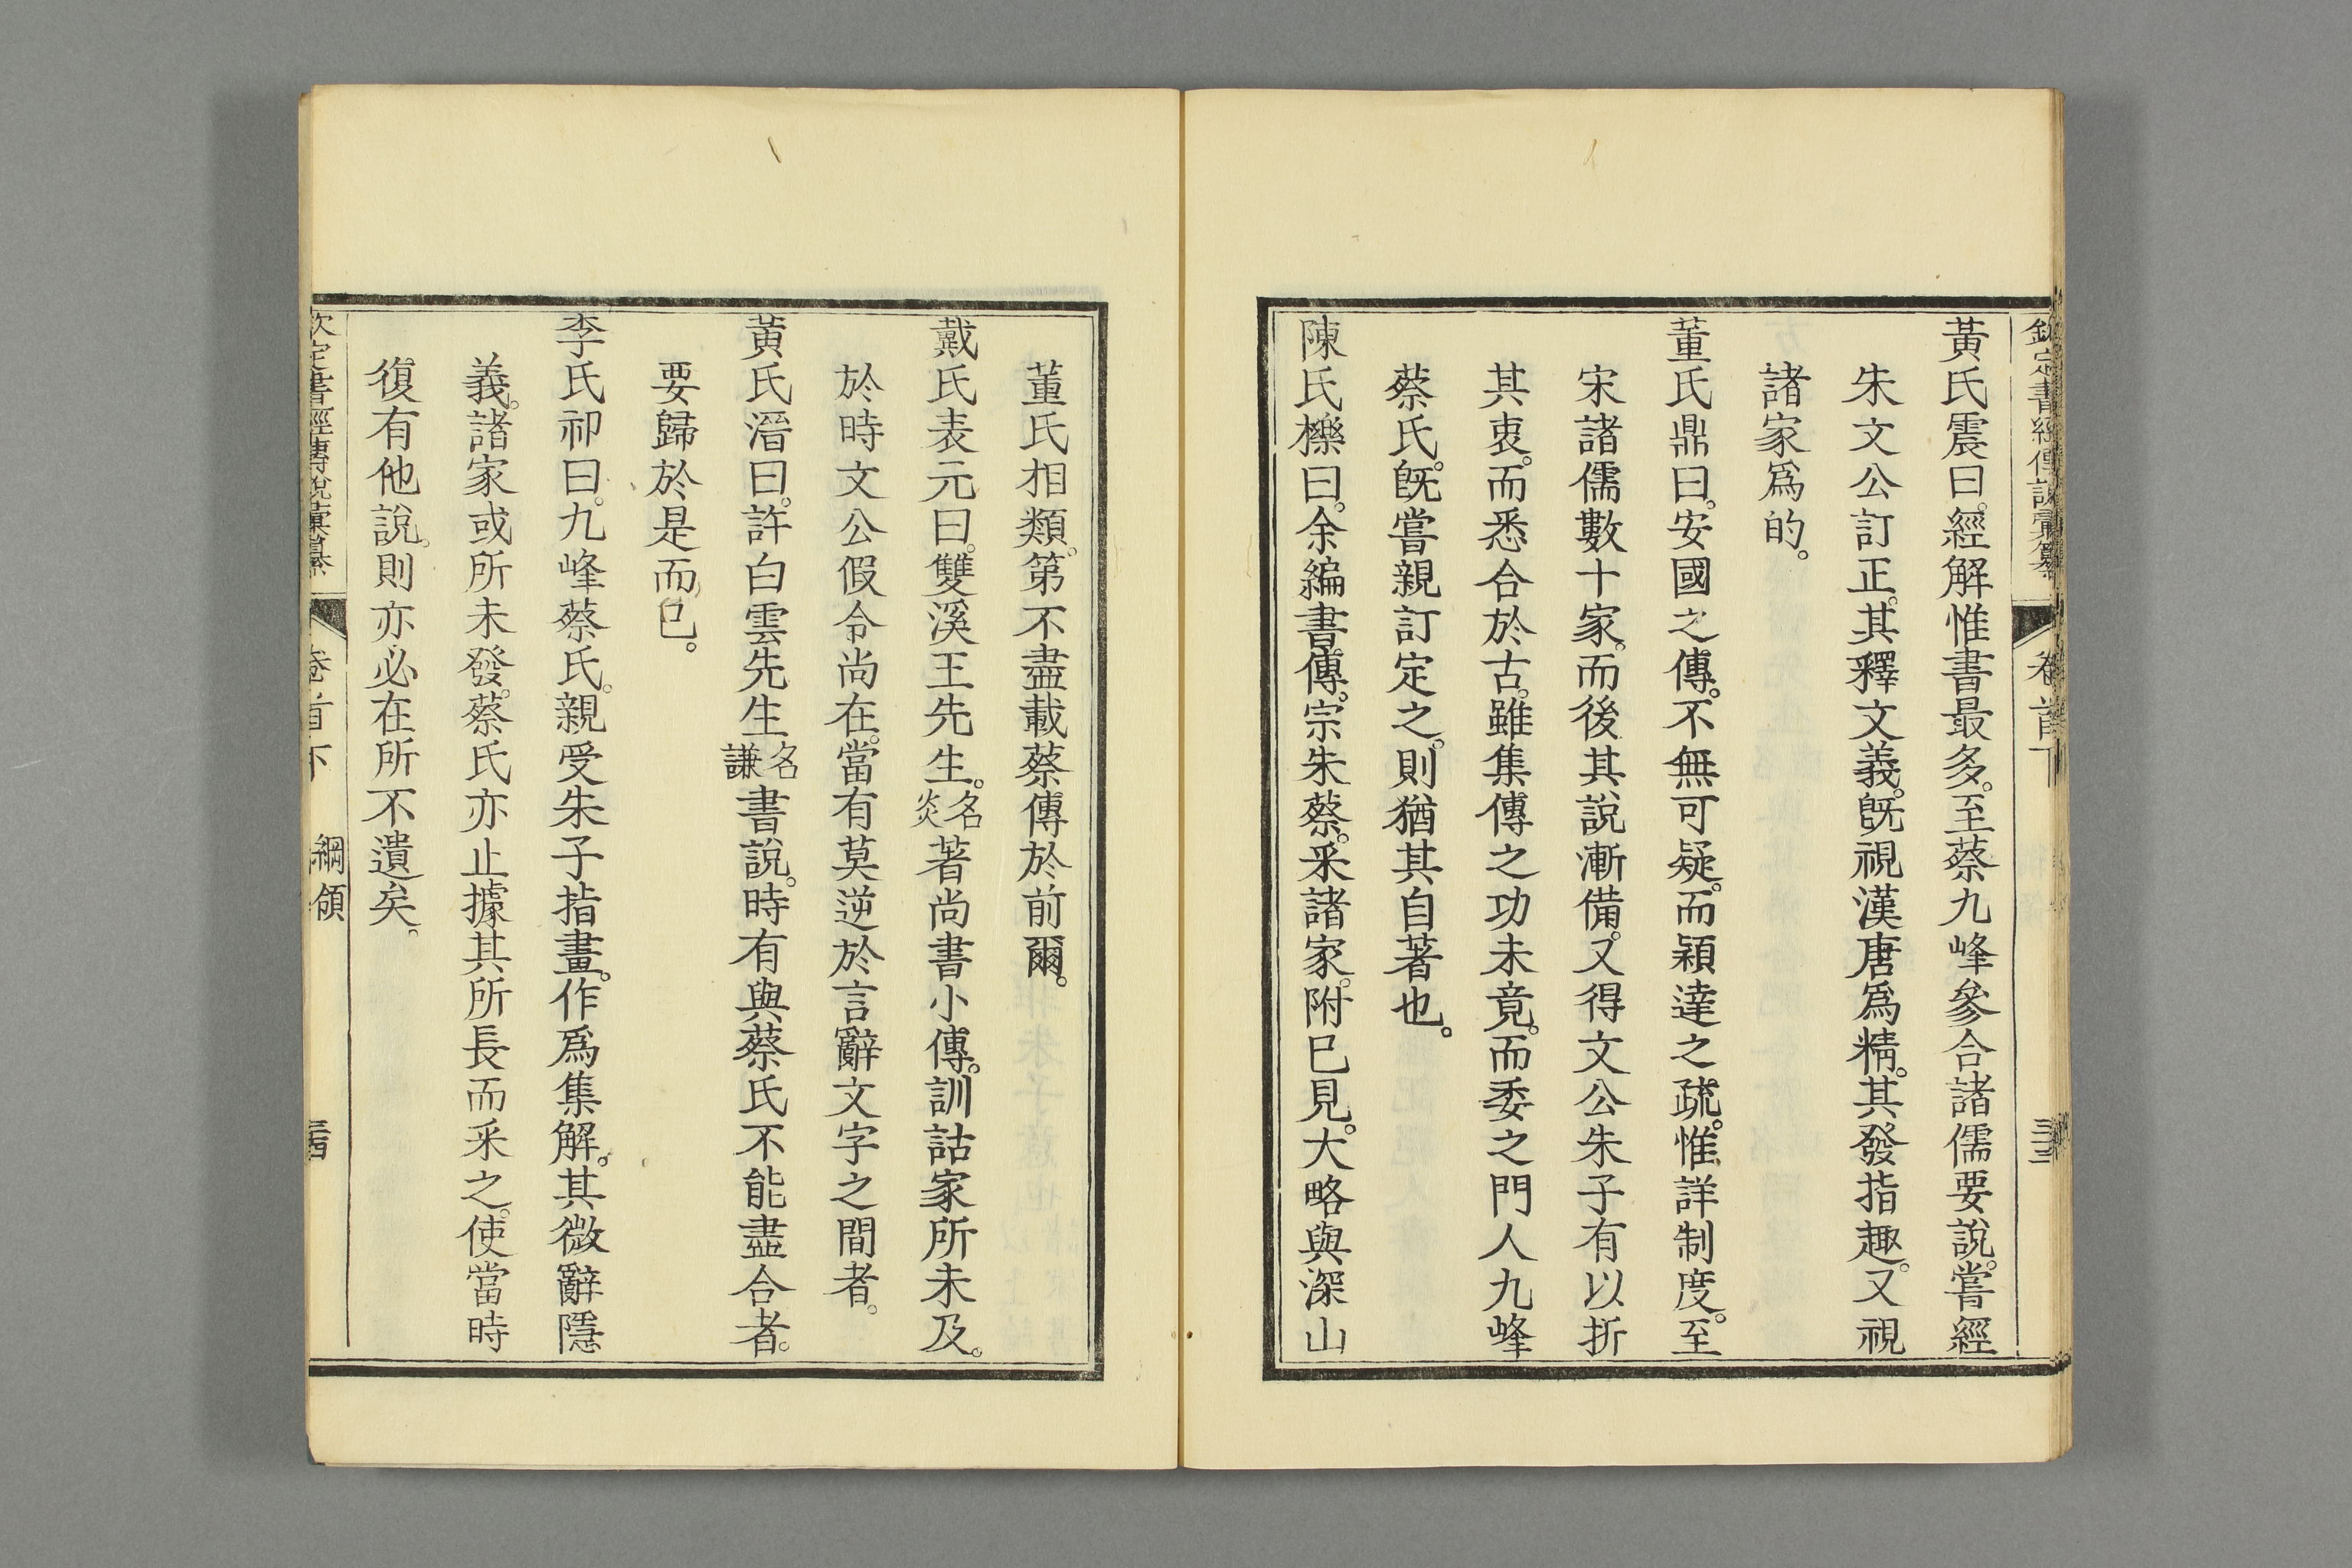 欽定書經傳說彙纂 卷首下 三三
黃氏震曰。經解惟書最多。至蔡九峰參合諸儒要說。嘗經
朱文公訂正。其釋文義。旣視漢唐爲精。其發指趣。又視
諸家爲的。
董氏鼎曰。安國之傳。不無可疑。而穎達之疏。惟詳制度。至
宋諸儒數十家。而後其說漸備。又得文公朱子有以折
其衷。而悉合於古。雖集傳之功未竟。而委之門人九峰
蔡氏。旣嘗親訂定之。則猶其自著也。
陳氏櫟曰。余編書傳。宗朱蔡。采諸家。附已見。大略與深山
董氏相類。第不盡載蔡傳於前爾。
戴氏表元曰。雙溪王先生。名炎著尚書小傳。訓詁家所未及。
於時文公假令尚在。當有莫逆於言辭文字之間者。
黃氏溍曰。許白雲先生名謙書說。時有與蔡氏不能盡合者。
要歸於是而已。
李氏祁曰。九峰蔡氏。親受朱子指畫。作爲集解。其微辭隱
義。諸家或所未發。蔡氏亦止據其所長而采之。使當時
復有他說。則亦必在所不遺矣。
欽定書經傳說彙纂 卷首下 綱領 三四